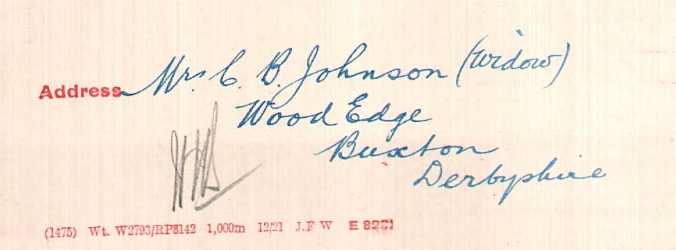 Address Mrs C. B. Johnson (Widow)
Wood Edge
Buxton
Derbyshire
(1475) Wt. W2793/RP8142 1,000m 12/21 J.F W E 8221